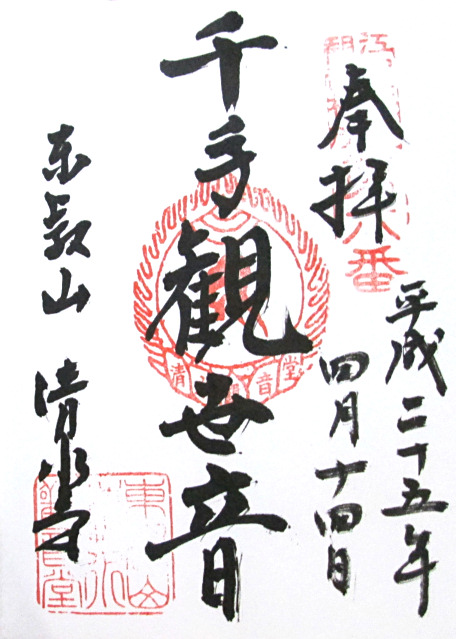 奉拝
平成二十五年
四月十四日
千手観世音
清水観音堂
東叡山 清水堂